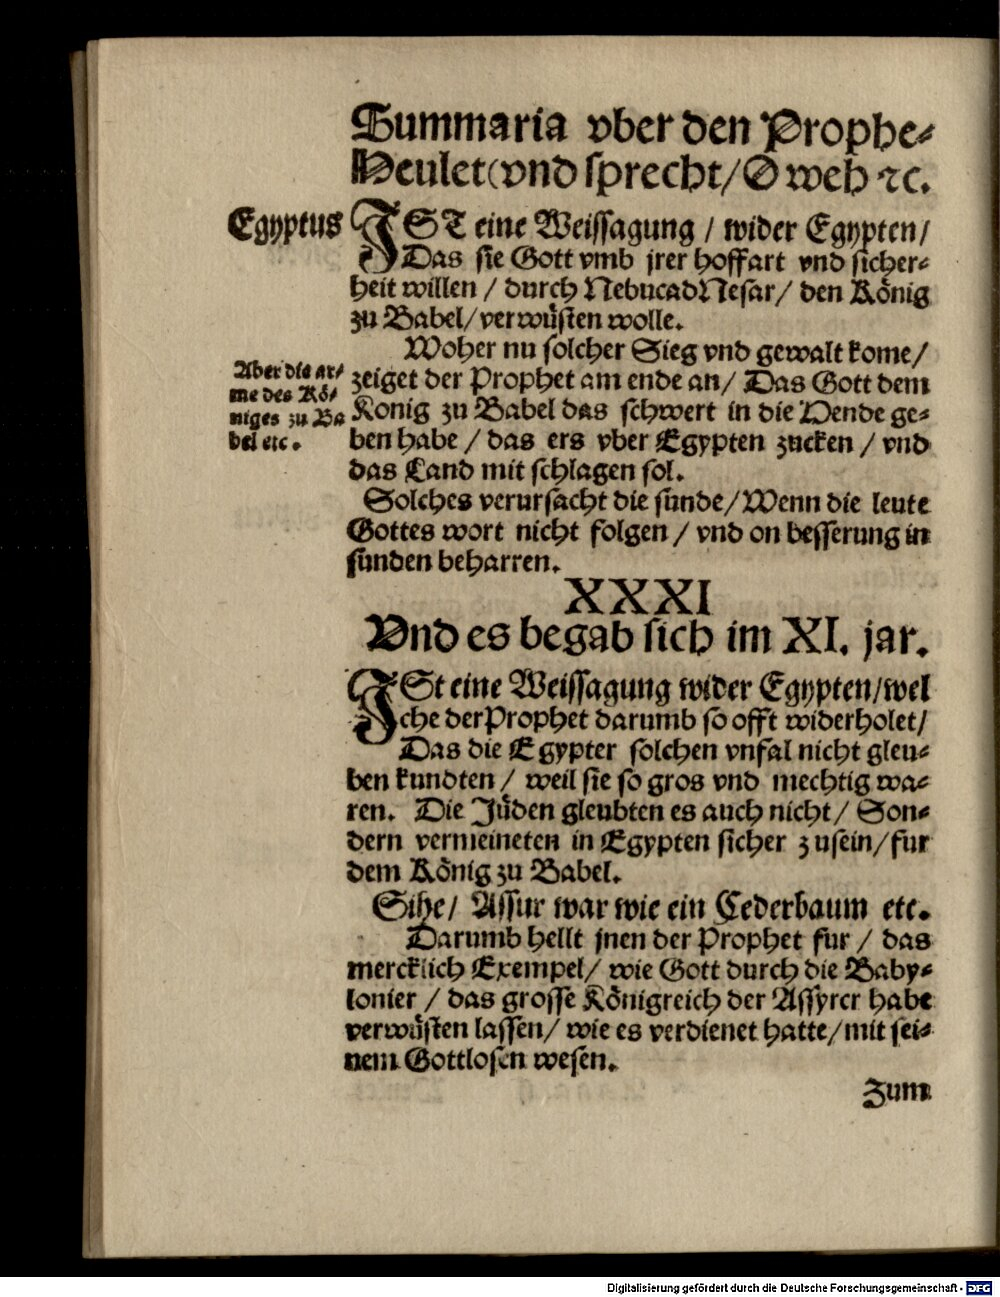 Summaria vber den Prophe⸗
Heulet(vnd sprecht/O weh ꝛc.
Egyptus
IST eine Weissagung / wider Egypten/
Das sie Gott vmb jrer hoffart vnd sicher⸗
heit willen / durch NebucadNesar/ den König
zu Babel/verwüsten wolle.
Woher nu solcher Sieg vnd gewalt kome/
Aber die ar/
me des Kö/
niges zu Ba
bel etc.
zeiget der Prophet am ende an/ Das Gott dem
Konig zu Babel das schwert in die Hende ge⸗
ben habe / das ers vber Egypten zucken / vnd
das Land mit schlagen sol.
Solches verursacht die sunde/Wenn die leute
Gottes wort nicht folgen / vnd on besserung in
sunden beharren.
XXXI
Vnd es begab sich im XI. jar.
ISt eine Weissagung wider Egypten/wel
che der Prophet darumb so offt widerholet/
Das die Egypter solchen vnfal nicht gleu⸗
ben kundten / weil sie so gros vnd mechtig wa⸗
ren. Die Jüden gleubten es auch nicht/ Son⸗
dern vermeineten in Egypten sicher zusein/fur
dem König zu Babel.
Sihe/ Assur war wie ein Cederbaum etc.
Darumb hellt jnen der Prophet fur / das
mercklich Exempel/ wie Gott durch die Baby⸗
lonier / das grosse Königreich der Assyrer habe
verwüsten lassen/ wie es verdienet hatte/mit sei⸗
nem Gottlosen wesen.
Zum
Digitalisierung gefördert durch die Deutsche Forschungsgemeinschaft - DFG